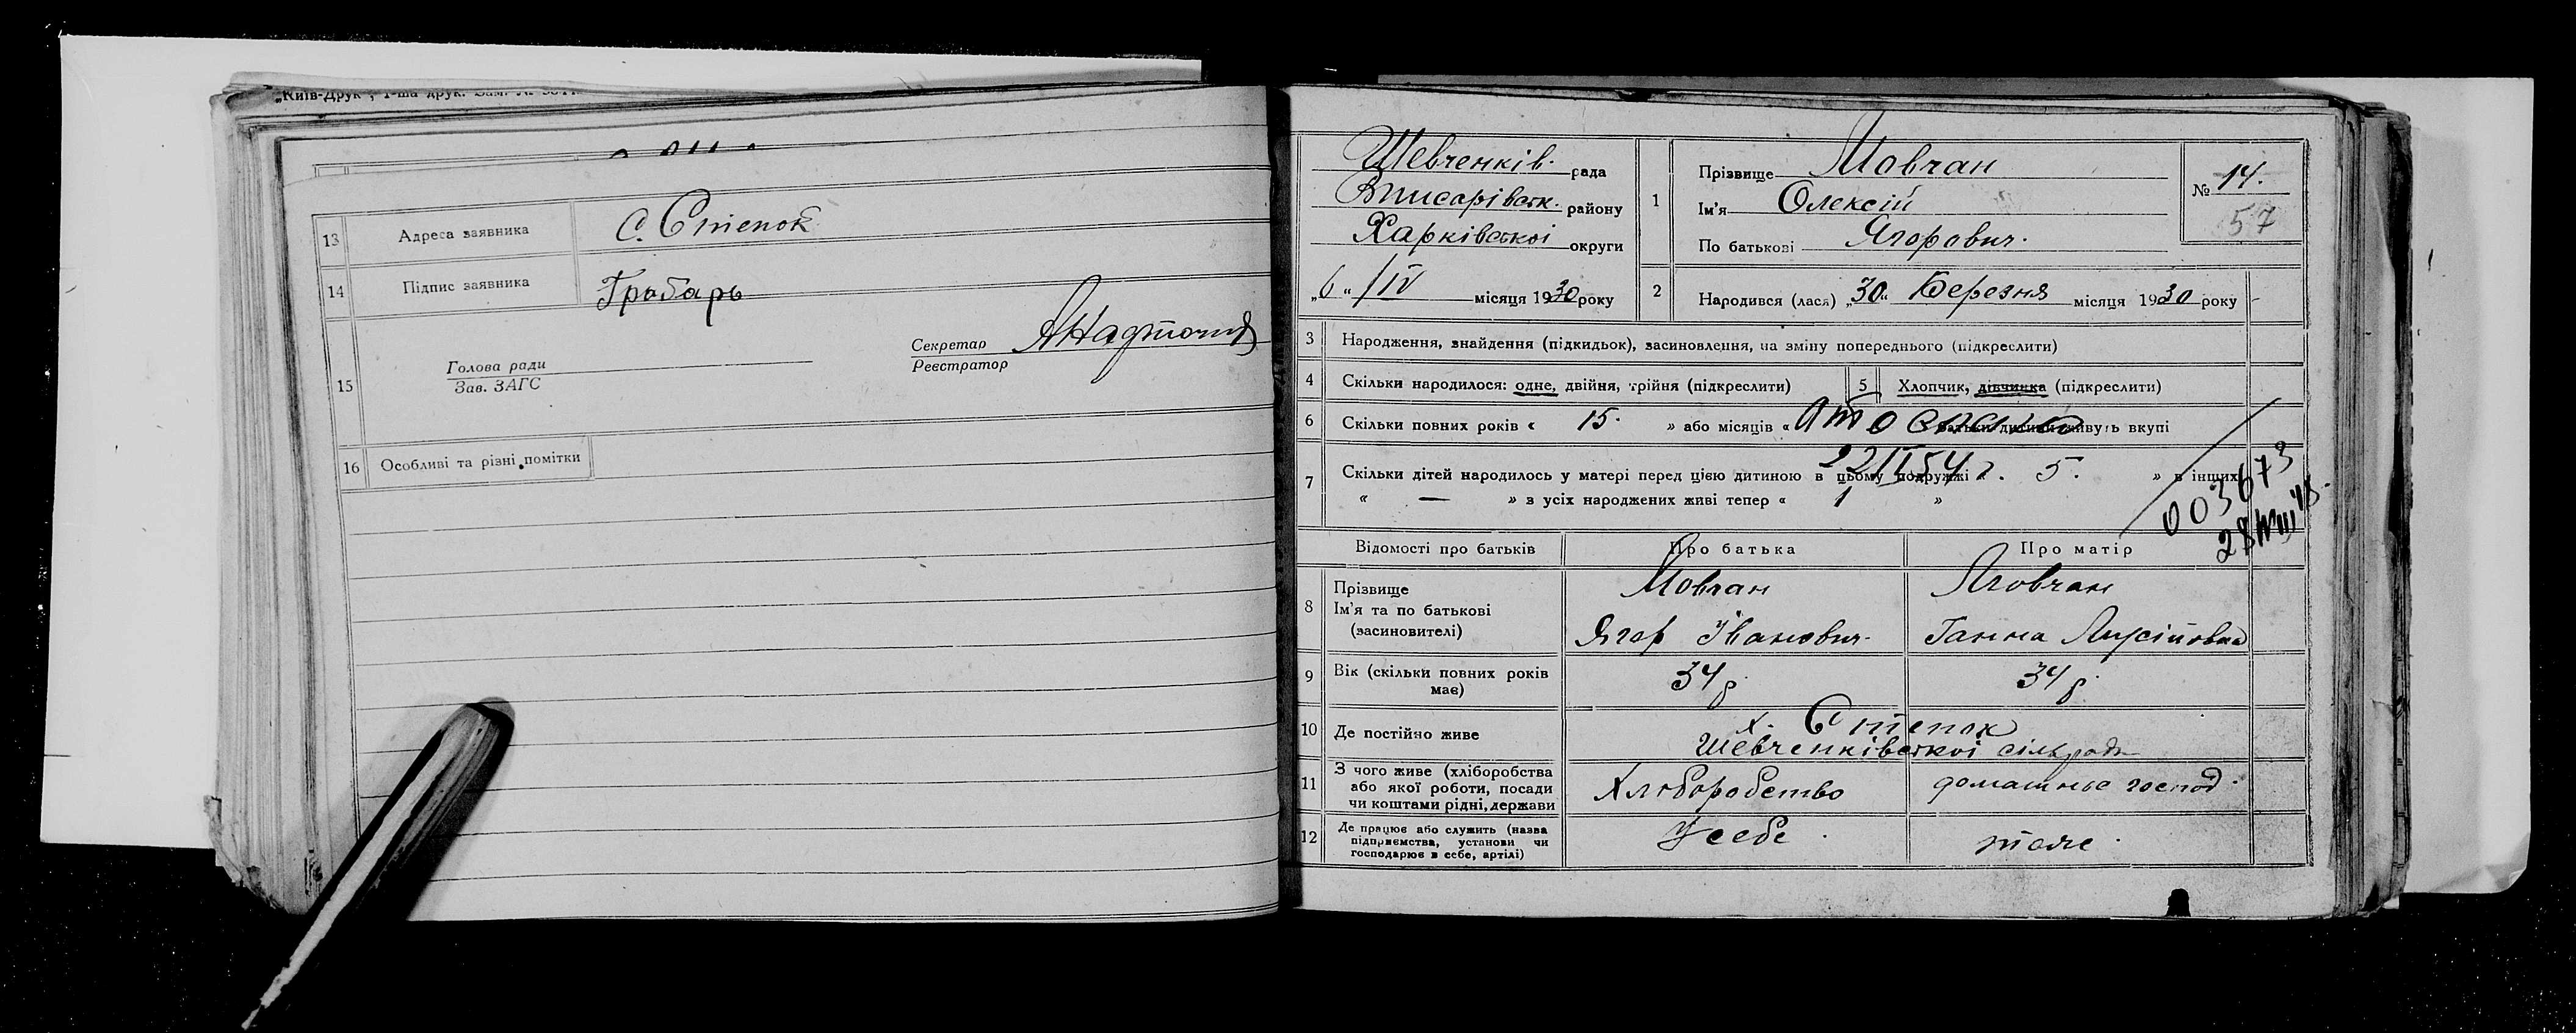 „Київ-Друк", 1-ша друк. Зам. №
13 Адреса заявника С. Степок
14 Підпис заявника Грабарь
15 Голова ради
Зав. ЗАГС
Секретар
Реєстратор
16 Особливі та різні помітки
Шевченків. рада
Вписарівськ. району
Харківської округи
„6“ /IV місяця 1930 року
1 Прізвище Мовчан
Ім'я Олексій
По батькові Ягорович.
№ 14.
57
2 Народився (лася) „30“ Березня місяця 1930 року
3 Народження, знайдення (підкидьок), засиновлення, на зміну попереднього (підкреслити)
4 Скільки народилося: одне, двійня, трійня (підкреслити)
5 Хлопчик, дівчинка (підкреслити)
6 Скільки повних років « 15. » або місяців « батьки дитини живуть вкупі
7 Скільки дітей народилось у матері перед цією дитиною в цьому подружжі « 5. » в інших
« — » з усіх народжених живі тепер « 1 »
003673
Відомості про батьків Про батька Про матір
8 Прізвище
Ім'я та по батькові
(засиновителі)
Мовчан
Ягор Іванович.
Мовчан
Ганна
9 Вік (скільки повних років
має)
34 р. 34 р.
10 Де постійно живе х. Степок
Шевченківської сільради
11 З чого живе (хліборобства
або якої роботи, посади
чи коштами рідні, держави
Хлоборобство домашнье господ.
12 Де працює або служить (назва
підприємства, установи чи
господарює в себе, артілі)
У себе. тоже.